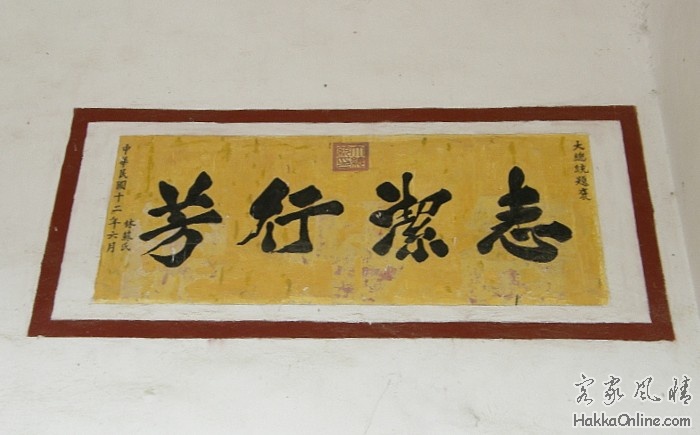 大總統題褒
志潔行芳
中華民國十二年六月
林蘇氏
客家風情
HakkaOnline.com